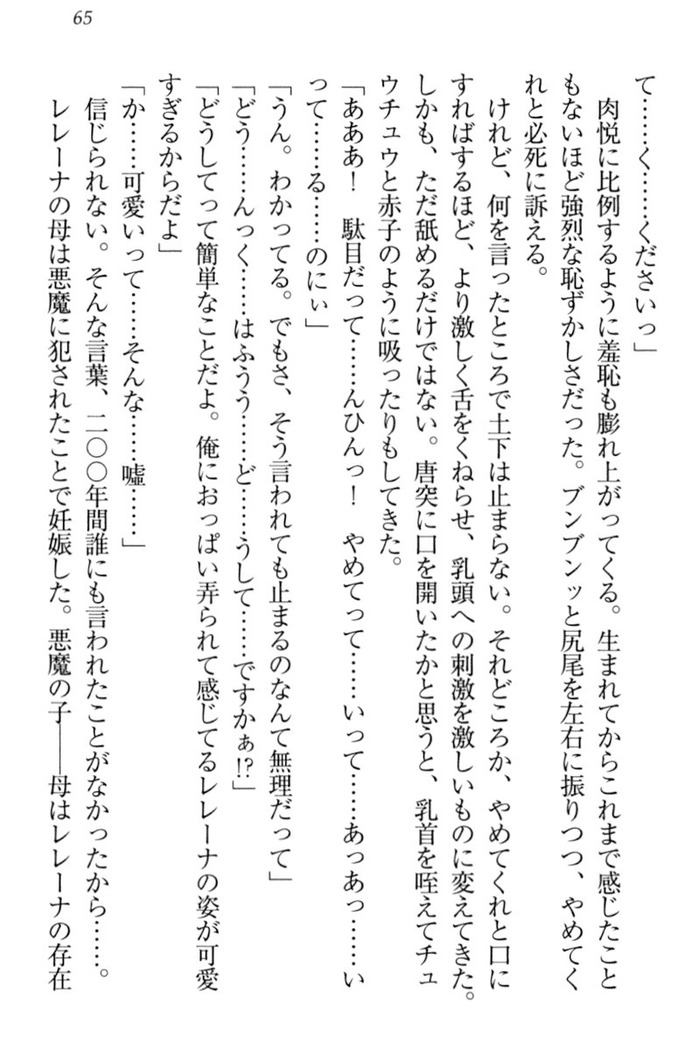 65
て……く……くださいっ」
　肉悦に比例するように羞恥も膨れ上がってくる。生まれてからこれまで感じたこと
もないほど強烈な恥ずかしさだった。ブンブンッと尻尾を左右に振りつつ、やめてく
れと必死に訴える。
　けれど、何を言ったところで土下は止まらない。それどころか、やめてくれと口に
すればするほど、より激しく舌をくねらせ、乳頭への刺激を激しいものに変えてきた。
しかも、ただ舐めるだけではない。唐突に口を開いたかと思うと、乳首を咥えてチュ
ウチュウと赤子のように吸ったりもしてきた。
「あああ！　駄目だって……んひんっ！　やめてって……いって……あっあっ……い
って……る……のにぃ」
「うん。わかってる。でもさ、そう言われても止まるのなんて無理だって」
「どう……んっく……はふうう……ど……うして……ですかぁ!?」
「どうしてって簡単なことだよ。俺におっぱい弄られて感じてるレレーナの姿が可愛
すぎるからだよ」
「か……可愛いって……そんな……嘘……」
　信じられない。そんな言葉、二〇〇年間誰にも言われたことがなかったから……。
　レレーナの母は悪魔に犯されたことで妊娠した。悪魔の子――母はレレーナの存在